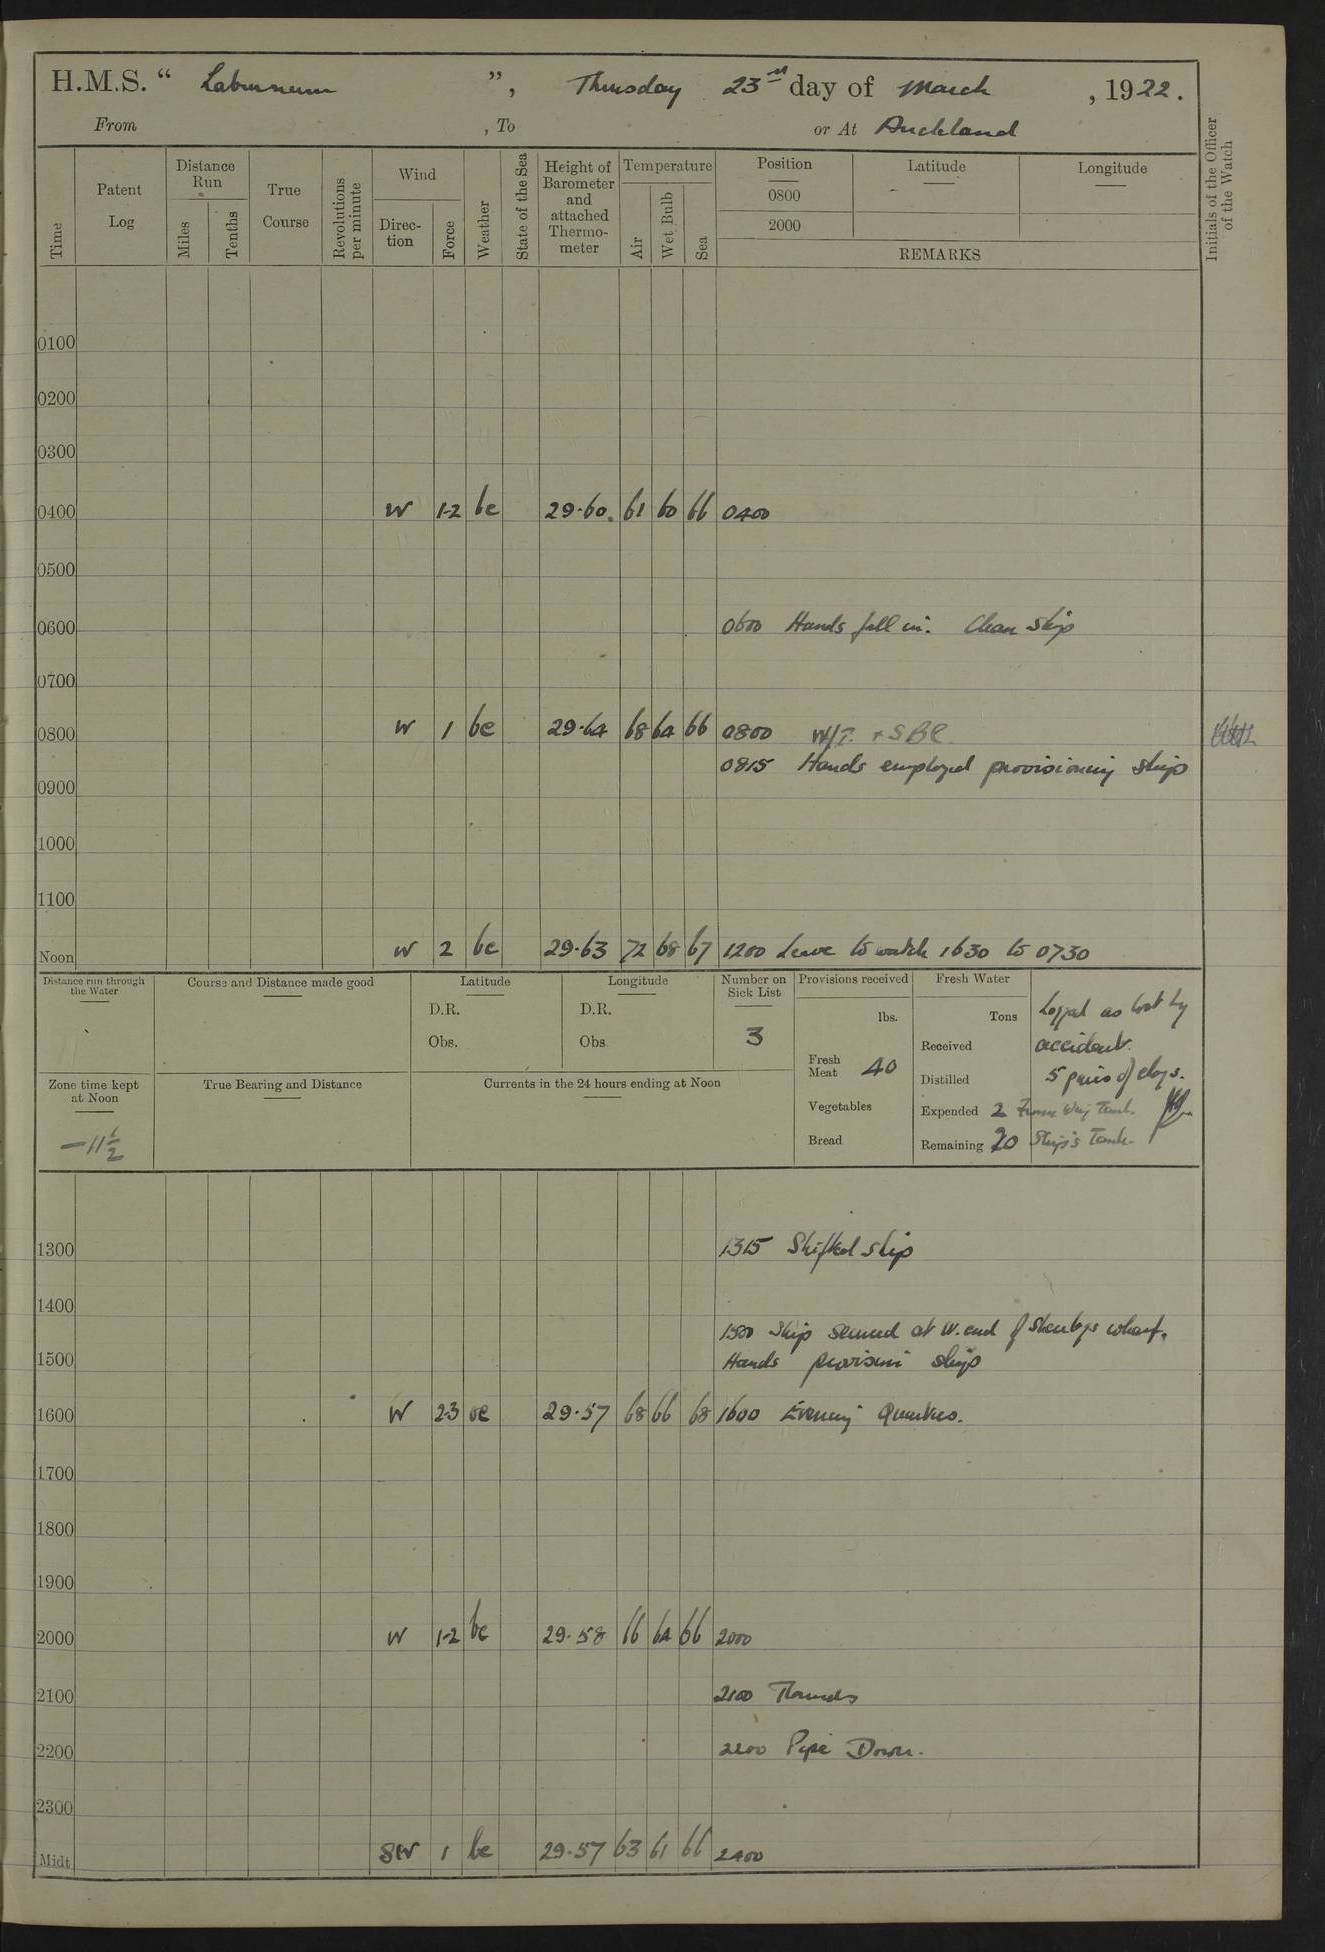 H.M.S. “ Laburnum ”, Thursday 23rd day of March , 1922.
From , To or At Auckland
Time Patent Log Distance Run Miles Tenths True Course Revolutions per minute Wind Direction Force Weather State of the Sea Height of Barometer and attached Thermometer Temperature Air Wet Bulb Sea Position 0800 2000 Latitude Longitude REMARKS Initials of the Officer of the Watch
0100
0200
0300
0400 W 1-2 bc 29·60 61 60 66 0400
0500
0600 0600 Hands fall in. Clean Ship
0700
0800 W 1 bc 29·64 68 64 66 0800 W/T.
0815 Hands employed provisioning ship
0900
1000
1100
Noon W 2 bc 29·63 72 68 67 1200 Leave to watch 1630 to 0730
Distance run through the Water Course and Distance made good Latitude Longitude Number on Sick List Provisions received Fresh Water
D.R. D.R. lbs. Tons Logged as lost by
Obs. Obs 3 Received accident.
Fresh Meat 40 Distilled 5 pairs of clogs.
Zone time kept at Noon True Bearing and Distance Currents in the 24 hours ending at Noon
Vegetables Expended 2 From Tank.
−11½ Bread Remaining 20 Ship's Tank.
1300 1315 Shifted ship
1400
1500 Ship secured at W. end of wharf.
1500 Hands provision ship
1600 W 2-3 oc 29·57 68 66 68 1600 Evening Quarters.
1700
1800
1900
2000 W 1-2 bc 29·58 66 64 66 2000
2100 2100 Rounds
2200 2200 Pipe Down.
2300
Midt SW 1 bc 29·57 63 61 66 2400